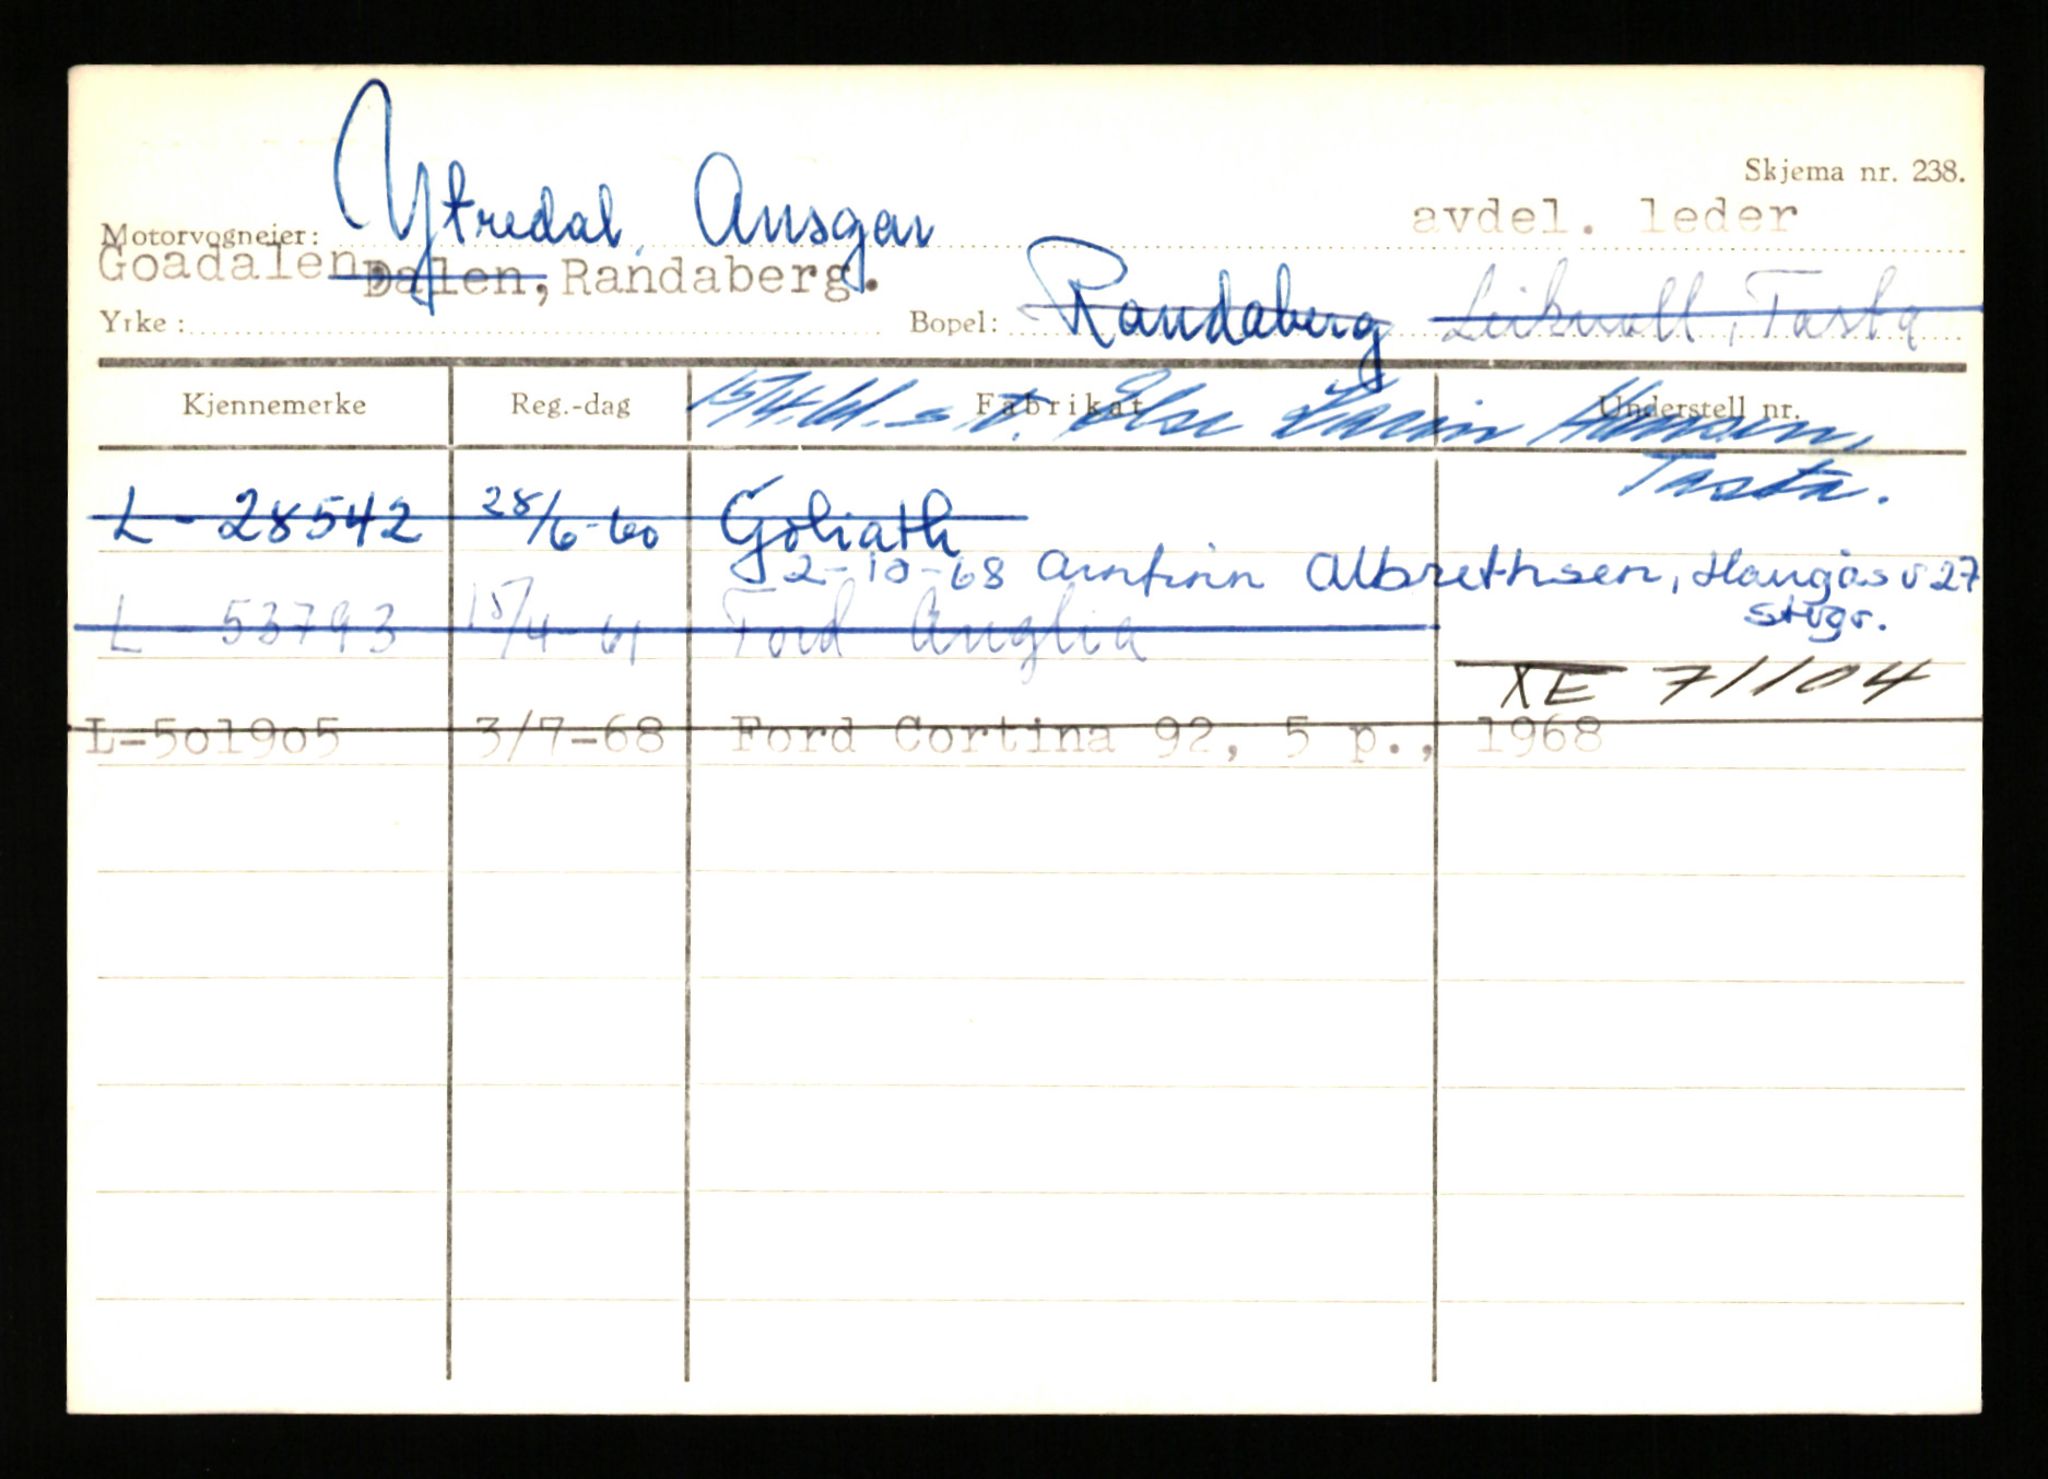 Skjema nr. 238.
Motorvogneier: Ytredal, Ansgar avdel. leder
Goadalen, Dalen, Randaberg.
Yrke: Bopel: Randaberg Tasta
Kjennemerke Reg.-dag Fabrikat Understell nr.
15/4.61. s.å. Else Hansen,
Tasta.
L - 28542 28/6-60 Goliath
2-10-68 Arnfinn Albrethsen, Haugåsv 27
stvgr.
L - 53793 15/4-61 Ford Anglia
XE 71104
L-501905 3/7-68 Ford Cortina 92, 5 p., 1968